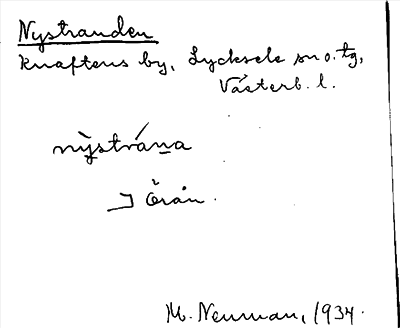 Nystranden
Knaftens by, Lycksele sn o. tg,
Västerb. l.
nỳstrána
Örån.
M. Neuman, 1934.